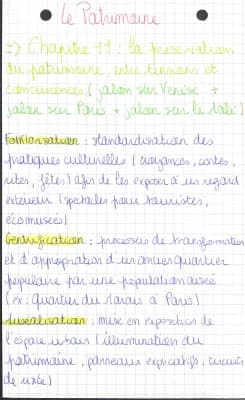 Le Patrimoine
=> Chapitre 11 : la préservation
du patrimoine, entre tensions et
concurrences (jalon sur Venise +
jalon sur Paris + jalon sur le Mali)
Folklorisation : standardisation des
pratiques culturelles (croyances, contes,
rites, fêtes) afin de les exposer à un regard
extérieur (spectacles pour touristes,
écomusées)
Gentrification : processus de transformation
et d'appropriation d'un ancien quartier
populaire par une population aisée
(ex : quartier du Marais à Paris)
Muséalisation : mise en exposition de
l'espace urbain (illumination du
patrimoine, panneaux explicatifs, circuits
de visite)